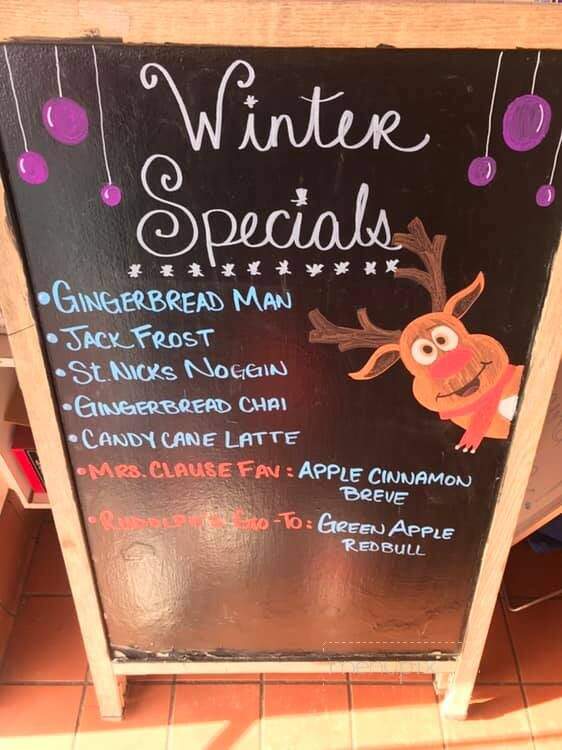 Winter
Specials
• GINGERBREAD MAN
• JACK FROST
• ST. NICKS NOGGIN
• GINGERBREAD CHAI
• CANDY CANE LATTE
• MRS. CLAUSE FAV: APPLE CINNAMON
BREVE
• RUDOLPH'S GO-TO: GREEN APPLE
REDBULL
menupix